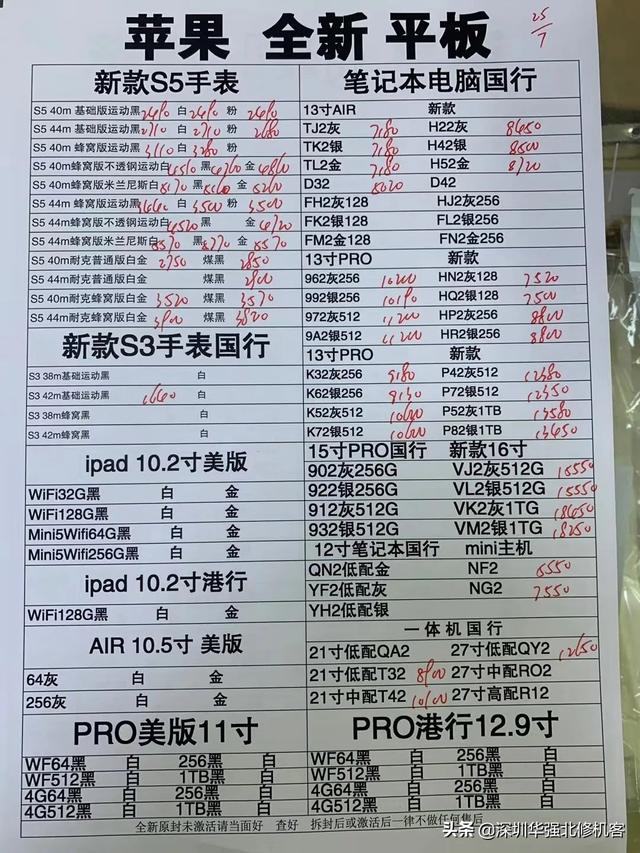 苹果 全新 平板
25/7
新款S5手表
S5 40m 基础版运动黑2480 白2480 粉 2480
S5 44m 基础版运动黑2710 白2710 粉 2680
S5 40m 蜂窝版运动黑3110 白3280 粉
S5 40m蜂窝版不锈钢运动白 黑 金
S5 40m蜂窝版米兰尼斯白 黑 金
S5 44m 蜂窝版运动黑 白3500 粉3500
S5 44m蜂窝版不锈钢运动白 黑 金
S5 44m蜂窝版米兰尼斯白 黑 金
S5 40m耐克普通版白金 2750 煤黑 2850
S5 44m耐克普通版白金 煤黑 2900
S5 40m耐克蜂窝版白金 3520 煤黑 3570
S5 44m耐克蜂窝版白金 3900 煤黑 3820
新款S3手表国行
S3 38m基础运动黑 白
S3 42m基础运动黑 1640 白
S3 38m蜂窝黑 白
S3 42m蜂窝黑 白
ipad 10.2寸美版
WiFi32G黑 白 金
WiFi128G黑 白 金
Mini5Wifi64G黑 白 金
Mini5Wifi256G黑 白 金
ipad 10.2寸港行
WiFi128G黑 白 金
AIR 10.5寸 美版
64灰 白 金
256灰 白 金
PRO美版11寸
WF64黑 白 256黑 白
WF512黑 白 1TB黑 白
4G64黑 白 256黑 白
4G512黑 白 1TB黑 白
笔记本电脑国行
13寸AIR 新款
TJ2灰 7180 H22灰 8450
TK2银 7180 H42银 8500
TL2金 7180 H52金 8720
D32 8020 D42
FH2灰128 HJ2灰256
FK2银128 FL2银256
FM2金128 FN2金256
13寸PRO 新款
962灰256 10200 HN2灰128 7520
992银256 10180 HQ2银128 7500
972灰512 11200 HP2灰256 8800
9A2银512 11200 HR2银256 8800
13寸PRO 新款
K32灰256 9180 P42灰512 12380
K62银256 9130 P72银512 12350
K52灰512 10600 P52灰1TB 13580
K72银512 10600 P82银1TB 13450
15寸PRO国行 新款16寸
902灰256G VJ2灰512G 15550
922银256G VL2银512G 15550
912灰512G VK2灰1TG 18450
932银512G VM2银1TG 18250
12寸笔记本国行 mini主机
QN2低配金 NF2 5550
YF2低配灰 NG2 7550
YH2低配银
一体机国行
21寸低配QA2 27寸低配QY2 12650
21寸低配T32 8900 27寸中配RO2
21寸中配T42 10100 27寸高配R12
PRO港行12.9寸
WF64黑 白 256黑 白
WF512黑 白 1TB黑 白
4G64黑 白 256黑 白
4G512黑 白 1TB黑 白
全新原封未激活请当面好 查好 拆封后或激活后一律不做任何售后
头条 @深圳华强北修机客